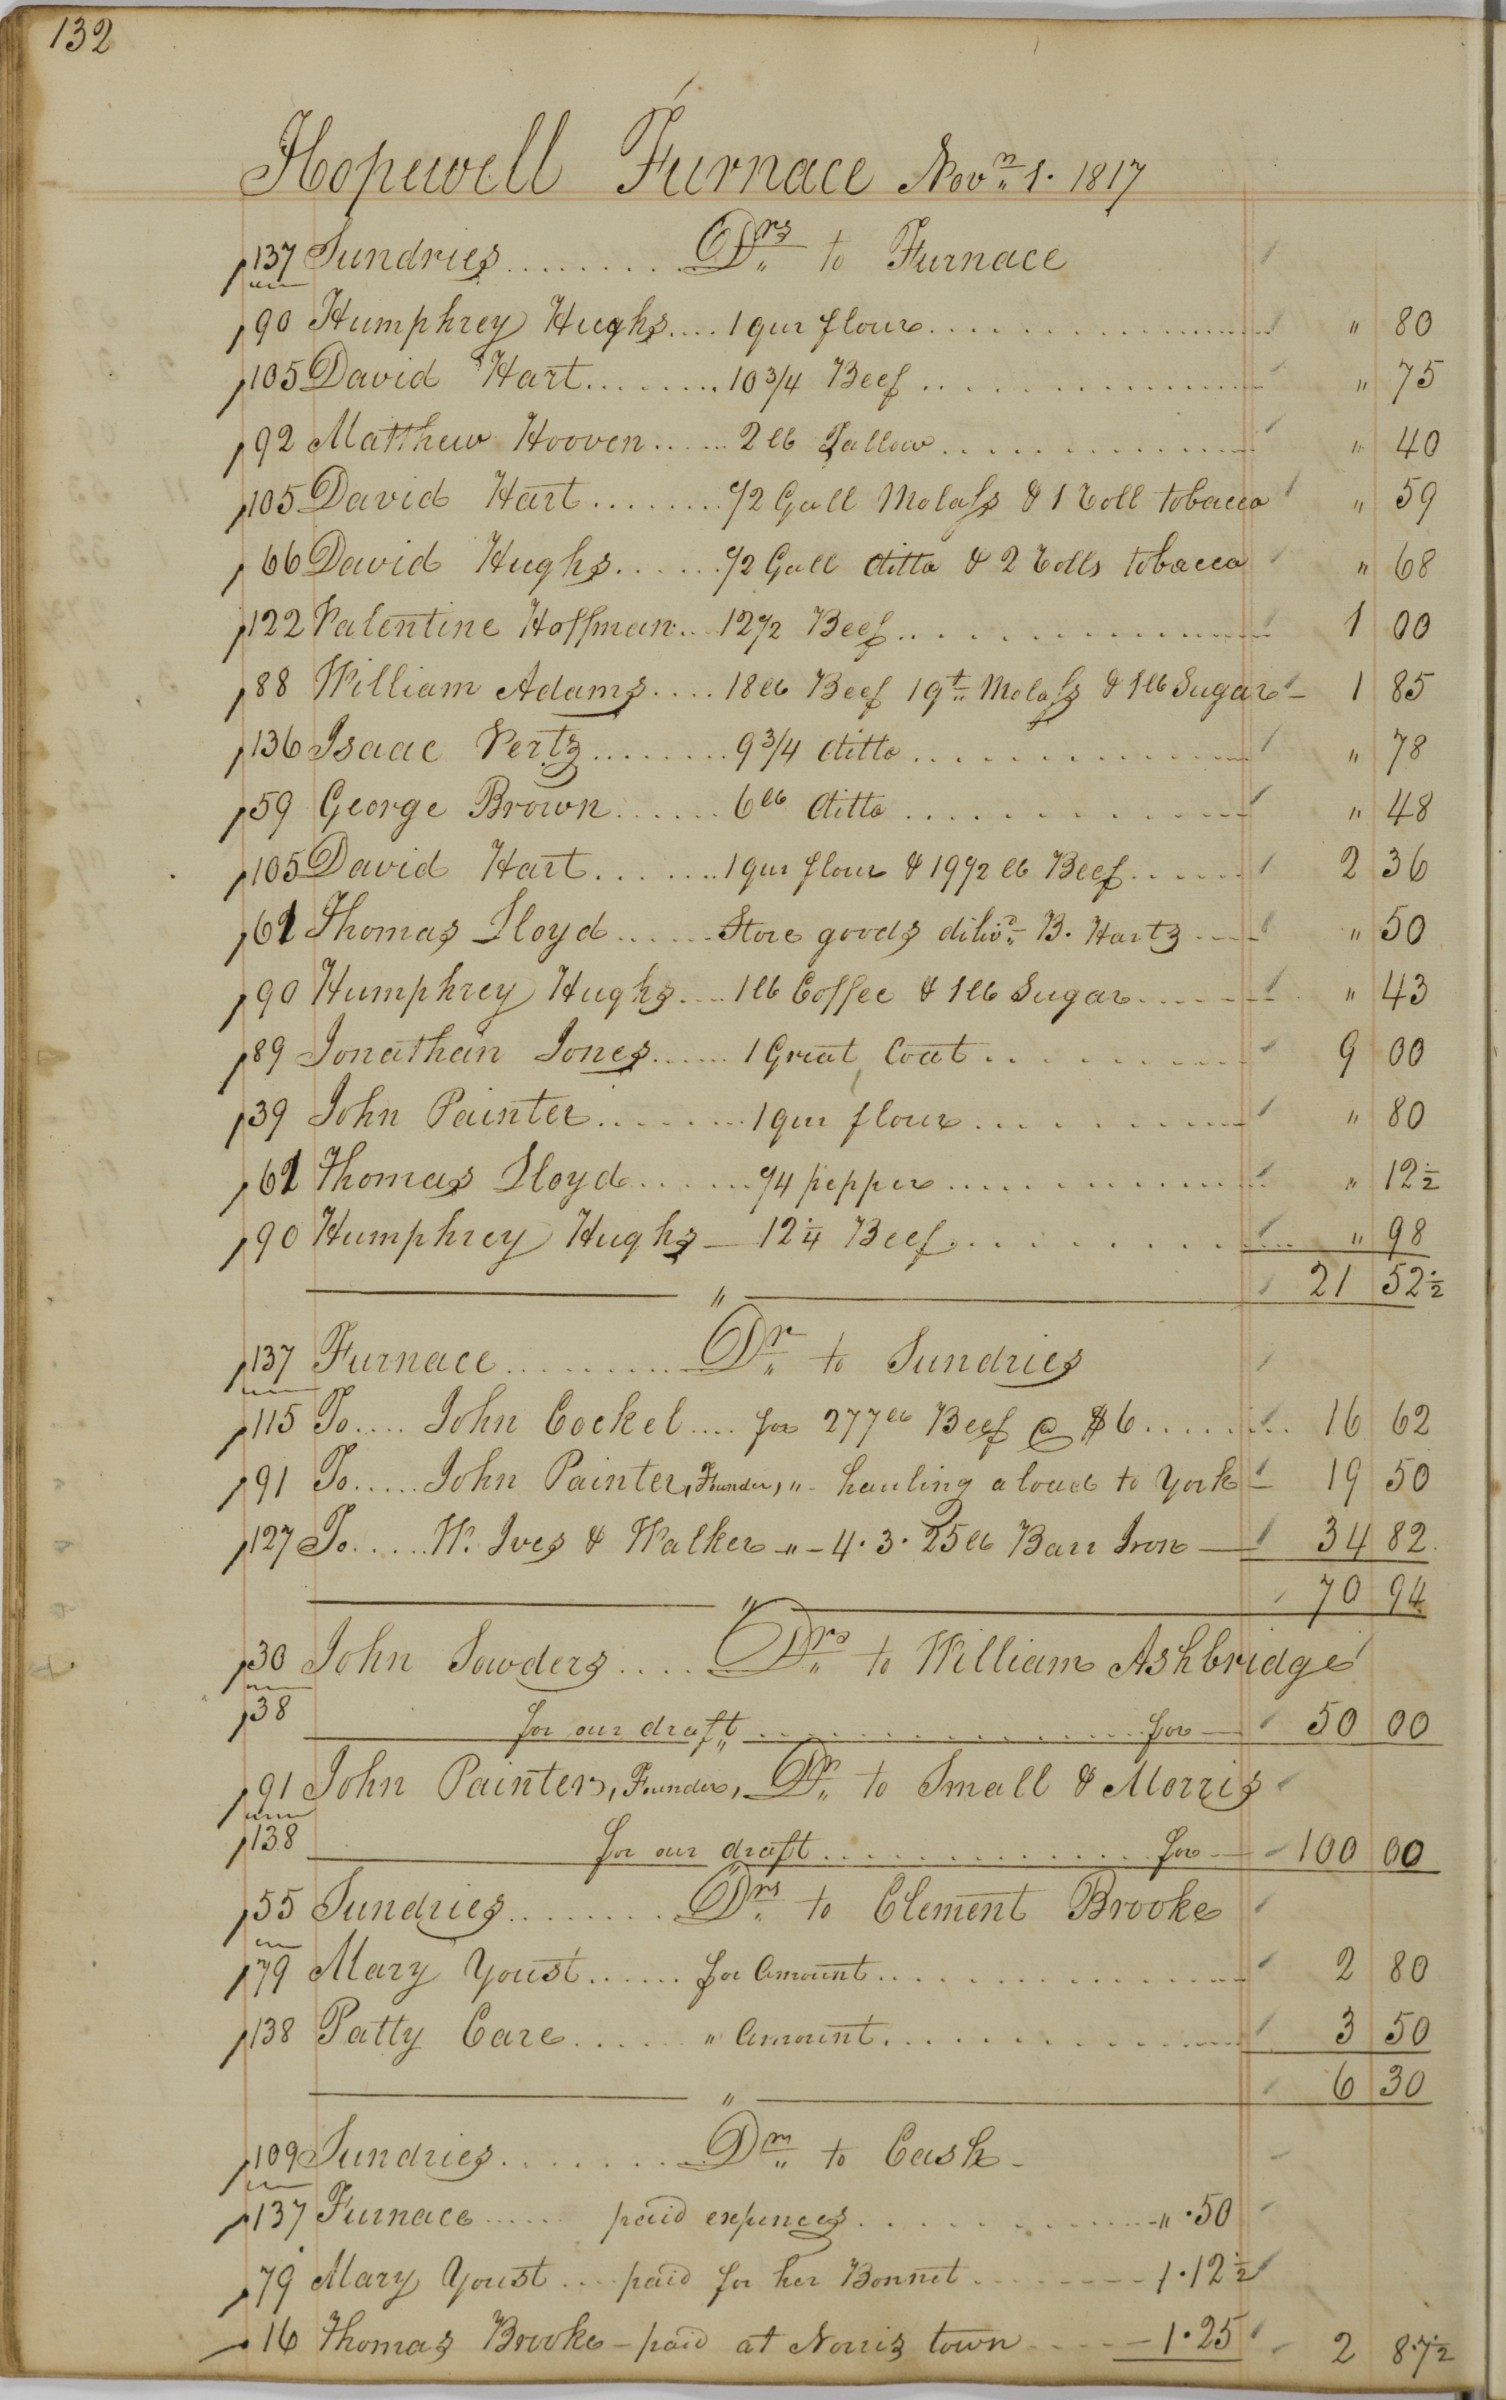 132
Hopewell Furnace Novm 1. 1817
137 Sundries......... Drs to Furnace
90 Humphrey Hughs.... 1 qur flour.................. " 80
105 David Hart........ 10 3/4 Beef.................. " 75
92 Matthew Hooven...... 2 lb Tallow.............. " 40
105 David Hart........ 1/2 Gall Molass & 1 Roll tobacco " 59
66 David Hughs...... 1/2 Gall ditto & 2 Rolls tobacco " 68
122 Valentine Hoffman.. 12 1/2 Beef................ 1 00
88 William Adams.... 18 lb Beef 1 qt Molass & 1 lb Sugar - 1 85
136 Isaac Vertz........ 9 3/4 ditto.............. " 78
59 George Brown...... 6 lb ditto.............. " 48
105 David Hart....... 1 qur flour & 19 1/2 lb Beef...... 2 36
61 Thomas Lloyd...... Store goods diliv'd B. Hartz.... " 50
90 Humphrey Hughs.... 1 lb Coffee & 1 lb Sugar...... " 43
89 Jonathan Jones...... 1 Great Coat.......... 9 00
39 John Painter........ 1 qur flour.......... " 80
61 Thomas Lloyd....... 1/4 pepper............ " 12 1/2
90 Humphrey Hughs - 12 1/4 Beef............ " 98
" 21 52 1/2
137 Furnace......... Dr to Sundries
115 To.... John Cockel.... for 277 lb Beef @ $6....... 16 62
91 To..... John Painter, Founder, " - hauling a load to York - 19 50
127 To..... W. Ives & Walker - " - 4.3.25 lb Barr Iron 34 82
" 70 94
30 John Sowders.... Drs to William Ashbridge
38 for our draft.............. for - 50 00
91 John Painter, Founder, Dr to Small & Morris
138 for our draft............. for - 100 00
55 Sundries........ Drs to Clement Brooke
79 Mary Youst...... for Amount............... 2 80
138 Patty Care...... " Amount............... 3 50
" 6 30
109 Sundries....... Drs to Cash -
137 Furnace..... paid expences............ " .50
79 Mary Youst.... paid for her Bonnet....... 1.12 1/2
16 Thomas Brooke - paid at Norris town.... 1.25 2 87 1/2